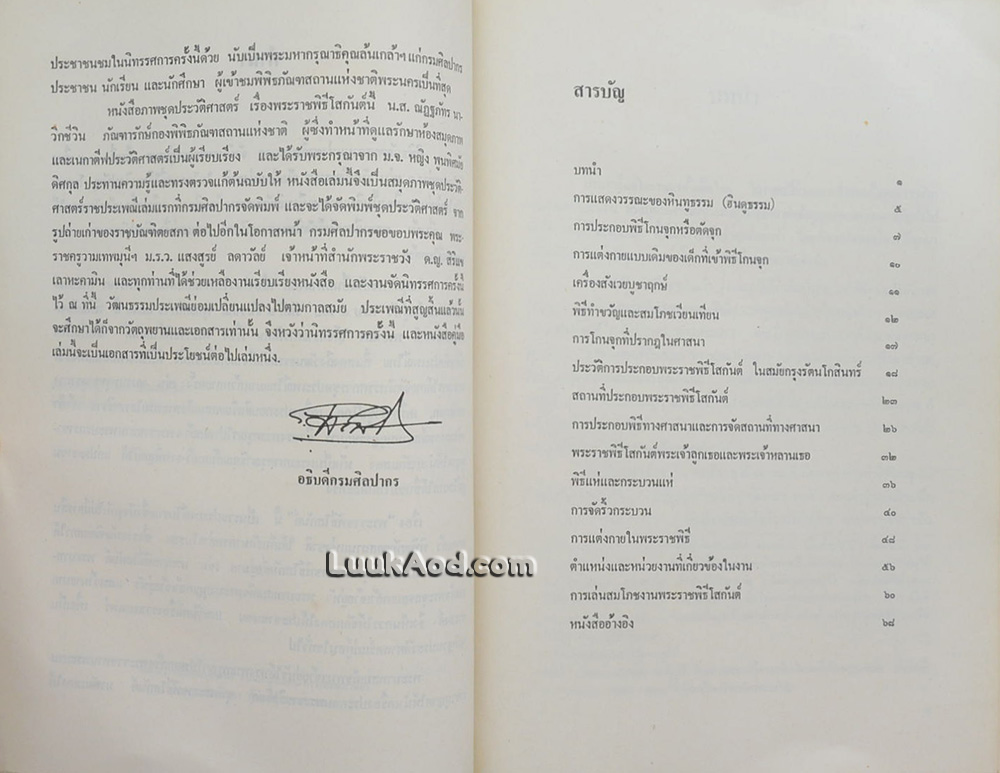 ประชาชนชมในนิทรรศการครั้งนี้ด้วย นับเป็นพระมหากรุณาธิคุณล้นเกล้าฯ แก่กรมศิลปากร
ประชาชน นักเรียน และนักศึกษา ผู้เข้าชมพิพิธภัณฑสถานแห่งชาติพระนครเป็นที่สุด
หนังสือภาพชุดประวัติศาสตร์ เรื่องพระราชพิธีโสกันต์นี้ น.ส. ณัฏฐภัทร นา-
วิกชีวิน ภัณฑารักษ์กองพิพิธภัณฑสถานแห่งชาติ ผู้ซึ่งทำหน้าที่ดูแลรักษาห้องสมุดภาพ
และเนกาตีฟประวัติศาสตร์เป็นผู้เรียบเรียง และได้รับพระกรุณาจาก ม.จ. หญิง พูนพิศมัย
ดิศกุล ประทานความรู้และทรงตรวจแก้ต้นฉบับให้ หนังสือเล่มนี้จึงเป็นสมุดภาพชุดประวัติ-
ศาสตร์ราชประเพณีเล่มแรกที่กรมศิลปากรจัดพิมพ์ และจะได้จัดพิมพ์ชุดประวัติศาสตร์ จาก
รูปถ่ายเก่าของราชบัณฑิตยสภา ต่อไปอีกในโอกาสหน้า กรมศิลปากรขอขอบพระคุณ พระ-
ราชครูวามเทพมุนีฯ ม.ร.ว. แสงสูรย์ ลดาวัลย์ เจ้าหน้าที่สำนักพระราชวัง ด.ญ.
เลาหะคามิน และทุกท่านที่ได้ช่วยเหลืองานเรียบเรียงหนังสือ และงานจัดนิทรรศการครั้งนี้
ไว้ ณ ที่นี้ วัฒนธรรมประเพณีย่อมเปลี่ยนแปลงไปตามกาลสมัย ประเพณีที่สูญสิ้นแล้วนั้น
จะศึกษาได้ก็จากวัตถุพยานและเอกสารเท่านั้น จึงหวังว่านิทรรศการครั้งนี้ และหนังสือคู่มือ
เล่มนี้จะเป็นเอกสารที่เป็นประโยชน์ต่อไปเล่มหนึ่ง.
อธิบดีกรมศิลปากร
LuukAod.com
สารบัญ
บทนำ ๑
การแสดงวรรณะของหินทูธรรม (ฮินดูธรรม) ๕
การประกอบพิธีโกนจุกหรือตัดจุก ๗
การแต่งกายแบบเดิมของเด็กที่เข้าพิธีโกนจุก ๑๐
เครื่องสังเวยบูชาฤกษ์ ๑๑
พิธีทำขวัญและสมโภชเวียนเทียน ๑๒
การโกนจุกที่ปรากฏในศาสนา ๑๗
ประวัติการประกอบพระราชพิธีโสกันต์ ในสมัยกรุงรัตนโกสินทร์ ๑๘
สถานที่ประกอบพระราชพิธีโสกันต์ ๒๓
การประกอบพิธีทางศาสนาและการจัดสถานที่ทางศาสนา ๒๖
พระราชพิธีโสกันต์พระเจ้าลูกเธอและพระเจ้าหลานเธอ ๓๒
พิธีแห่และกระบวนแห่ ๓๖
การจัดริ้วกระบวน ๔๐
การแต่งกายในพระราชพิธี ๔๘
ตำแหน่งและหน่วยงานที่เกี่ยวข้องในงาน ๕๖
การเล่นสมโภชงานพระราชพิธีโสกันต์ ๖๐
หนังสืออ้างอิง ๖๘